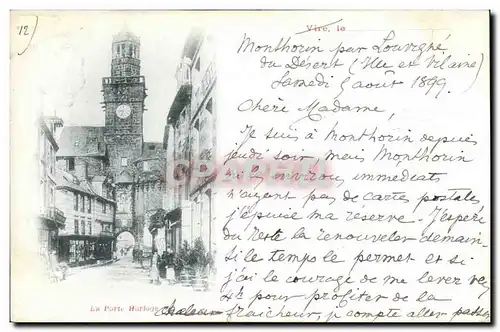 12)
Vire, le
Monthorin par Louvigné
du Désert (Ille et Vilaine)
Samedi 5 août 1899.
Chère Madame,
Je suis à Monthorin depuis
jeudi soir, mais Monthorin
ni les environs immédiats
n'ayant pas de cartes postales,
j'épuise ma réserve. J'espère
du reste la renouveler demain
si le temps le permet et si
j'ai le courage de me lever vers
4h pour profiter de la
fraîcheur, je compte aller passer
La Porte Horloge
chaleur
CPRAMA